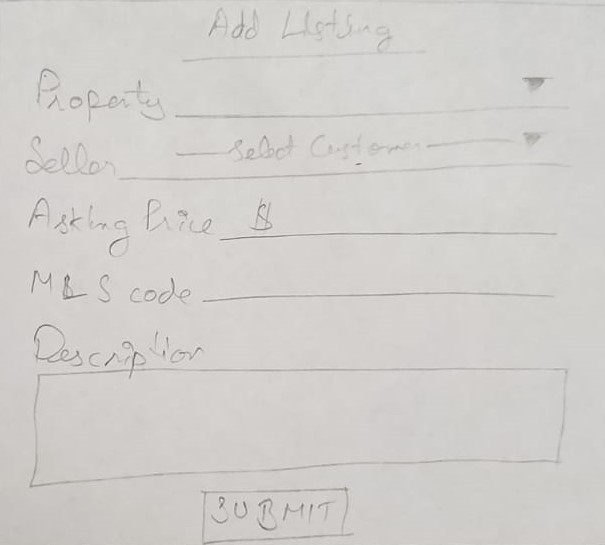 Add Listing
Property
Seller — Select Customer —
Asking Price $
MLS code
Description
SUBMIT